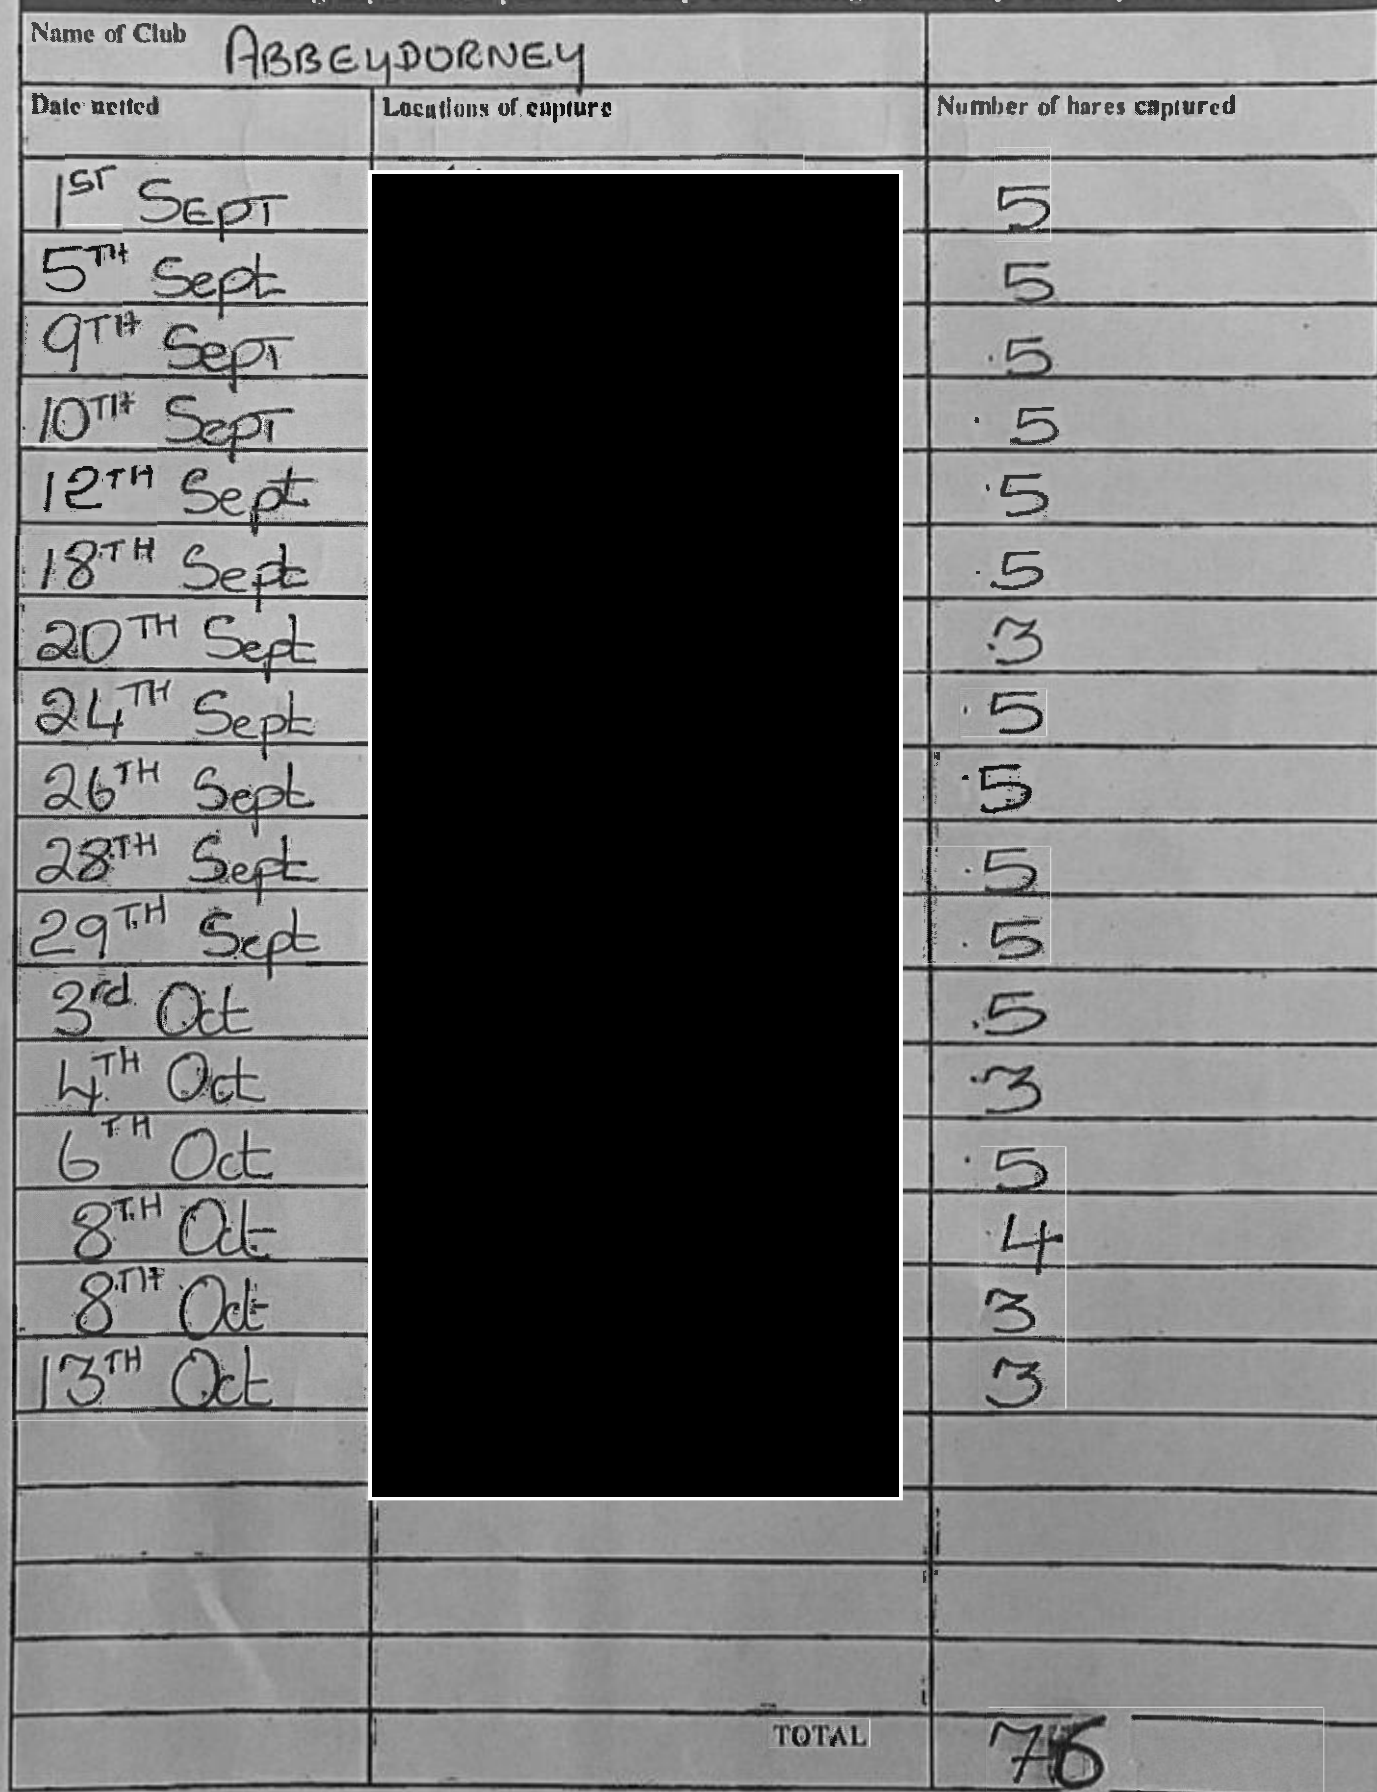 Name of Club ABBEYDORNEY
Date netted Locations of capture Number of hares captured
1ST SEPT 5
5TH Sept 5
9TH Sept 5
10TH Sept 5
12TH Sept 5
18TH Sept 5
20TH Sept 3
24TH Sept 5
26TH Sept 5
28TH Sept 5
29TH Sept 5
3rd Oct 5
4TH Oct 3
6TH Oct 5
8TH Oct 4
8TH Oct 3
13TH Oct 3
TOTAL 76